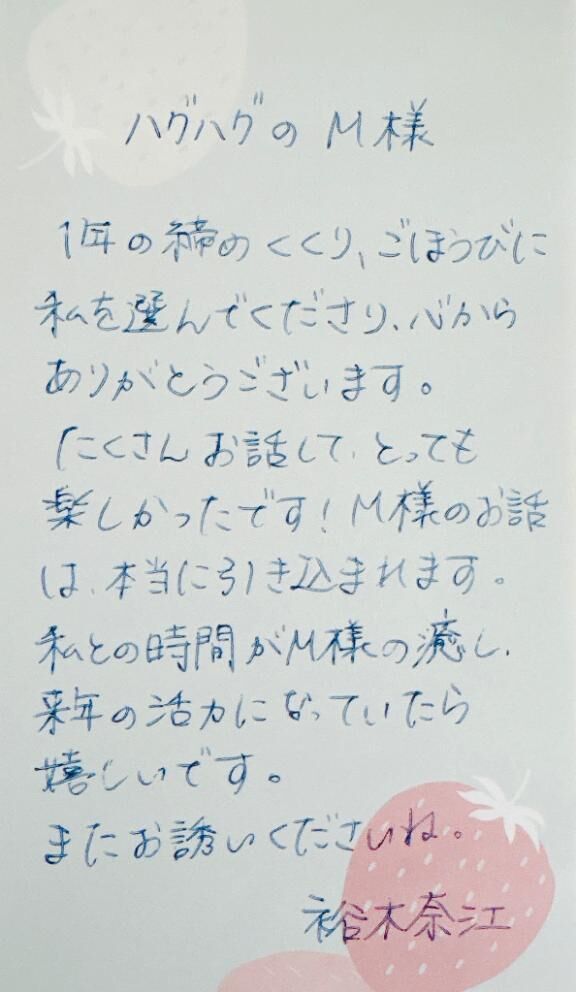 ハグハグの M様
1年の締めくくり、ごほうびに
私を選んでくださり、心から
ありがとうございます。
たくさんお話して、とっても
楽しかったです！M様のお話
は、本当に引き込まれます。
私との時間がM様の癒し、
来年の活力になっていたら
嬉しいです。
またお誘いくださいね。
裕木奈江